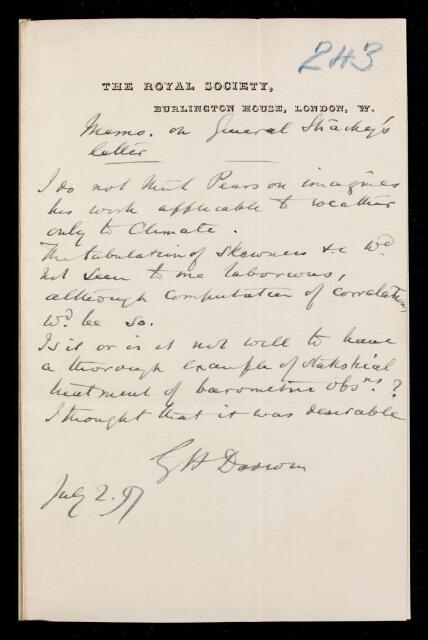 243
THE ROYAL SOCIETY,
BURLINGTON HOUSE, LONDON, W.
Memo. on General Strachey's
letter
I do not think Pearson imagines
his work applicable to weather
only to Climate.
The tabulation of skewness &c wd
not seem to me laborious,
although computation of correlations
wd be so.
Is it or is it not well to have
a thorough example of statistical
treatment of barometric obsns?
I thought that it was desirable
G H Darwin
July 2. 97